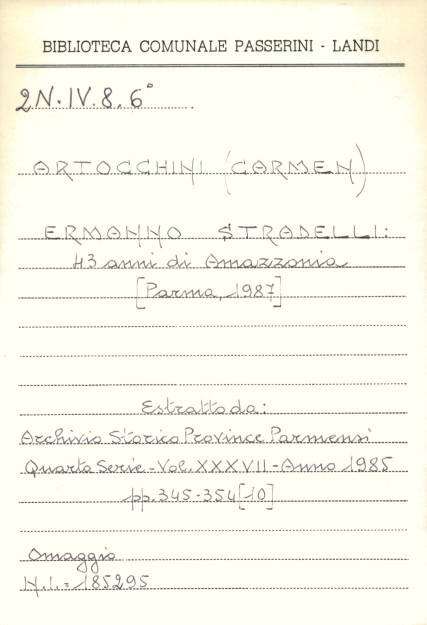 BIBLIOTECA COMUNALE PASSERINI - LANDI
2N.IV.8.6°
ARTOCCHINI (CARMEN)
ERMANNO STRADELLI:
43 anni di Amazzonia
[Parma, 1987]
Estratto da:
Archivio Storico Province Parmensi
Quarta Serie - Vol. XXXVII - Anno 1985
pp. 345-354 [10]
Omaggio
N.I. = 185295